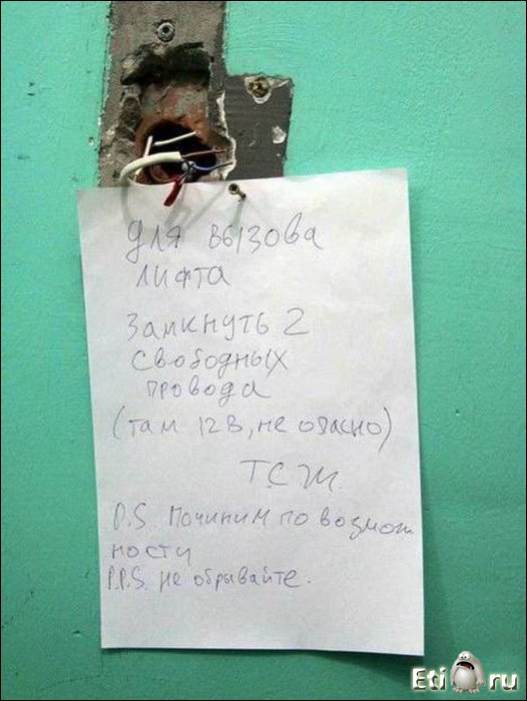 для вызова
лифта
Замкнуть 2
свободных
провода
(там 12В, не опасно)
Т.С.Ж.
P.S. Починим по возмож
ности
P.P.S. не обрывайте.
Eti ru